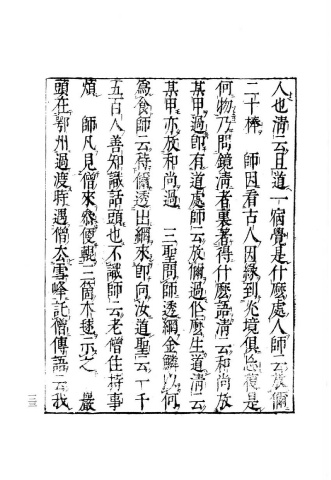 人也清云且道一宿覺是什麽處人師云放儞
二十棒　師因看古人因緣到光境俱忘復是
何物乃問鏡清者裏著得什麽語清云和尚放
某甲過卽有道處師云放儞過作麽生道清云
某甲亦放和尚過　三聖問師透網金鱗以何
爲食師云待儞透出網來卽向汝道聖云一千
五百人善知識話頭也不識師云老僧住持事
煩　師凡見僧來參便輥三箇木毬示之　巖
頭在鄂州過渡時遇僧去雪峰託僧傳語云我